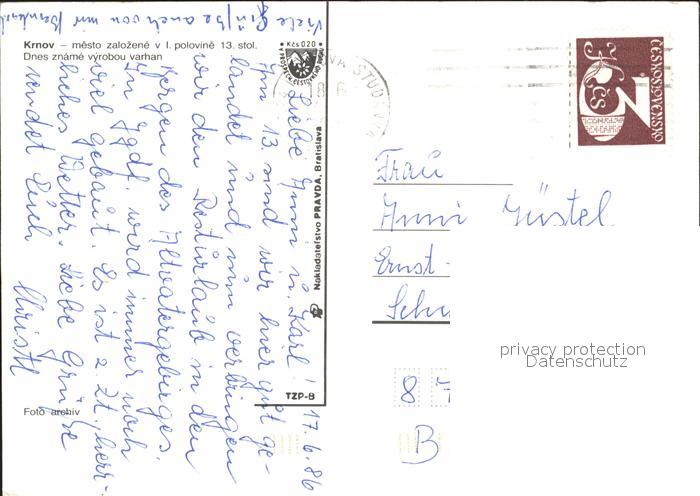 Viele Grüße auch von mir
Krnov – město založené v l. polovině 13. stol.
Dnes známé výrobou varhan
17. 6. 86
Liebe Anni u. Karl!
Am 13. sind wir hier gut ge-
landet und nun verbringen
wir den Resturlaub in den
Bergen des Altvatergebirges.
In Jgdf. wird immer noch
viel gebaut. Es ist z. Zt. herr-
liches Wetter. Liebe Grüße
sendet Euch
Christl
Foto archiv
Kčs 020
Nakladatelstvo PRAVDA, Bratislava
TZP-8
STUDÁNKA
ČESKOSLOVENSKO
Kčs
Frau
Anni Güstel
Ernst-
Schn
privacy protection
Datenschutz
8
B